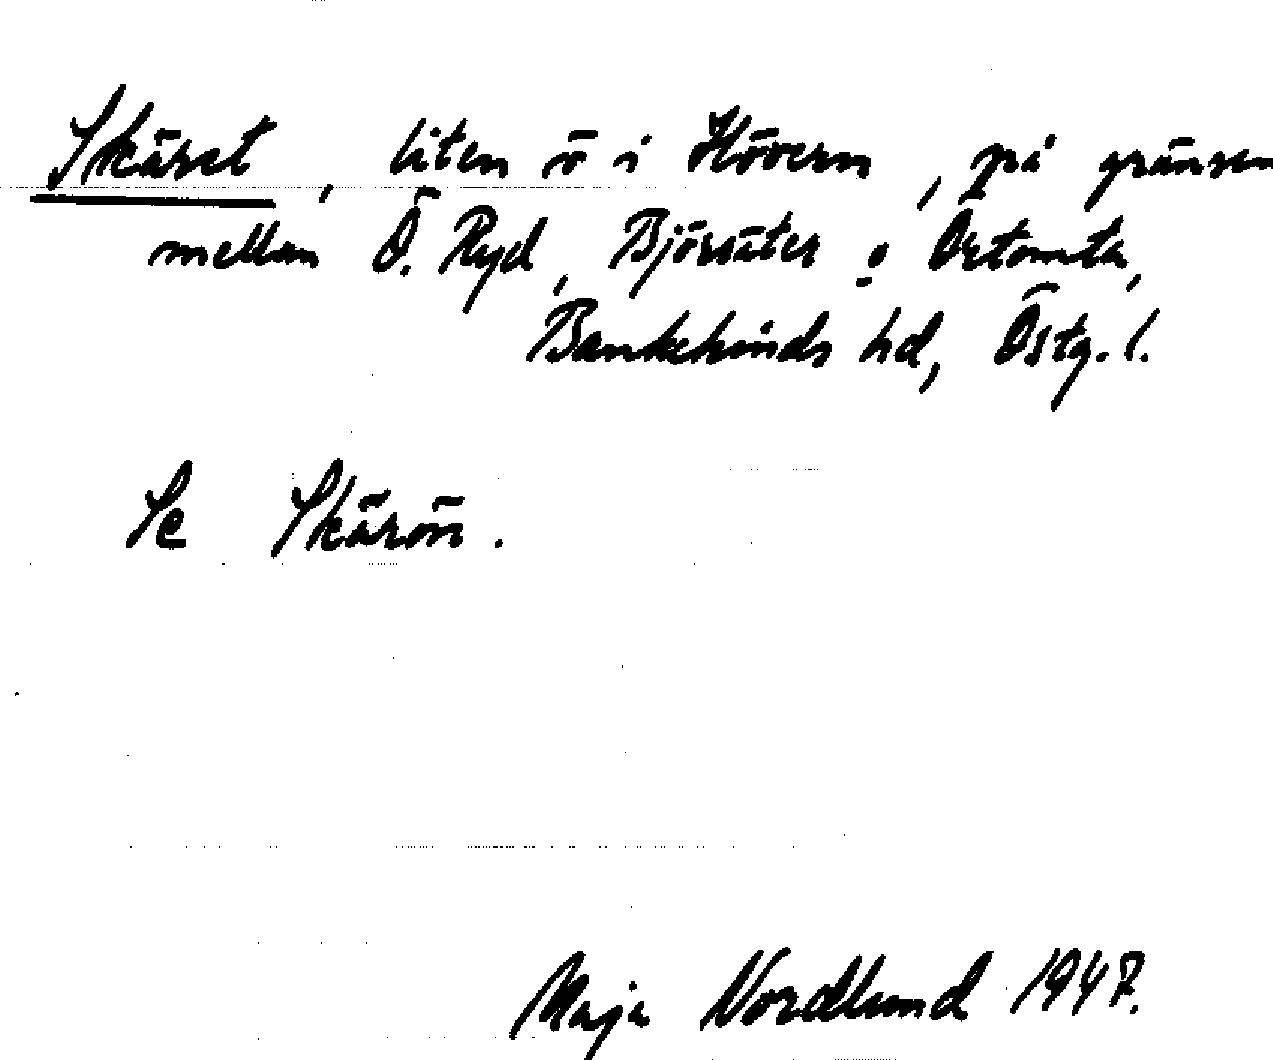 Skäret, liten ö i Hövern, på gränsen
mellan Ö. Ryd, Björsäter o Örtomta,
Bankekinds hd, Östg. l.
Se Skärön.
Maja Nordlund 1947.